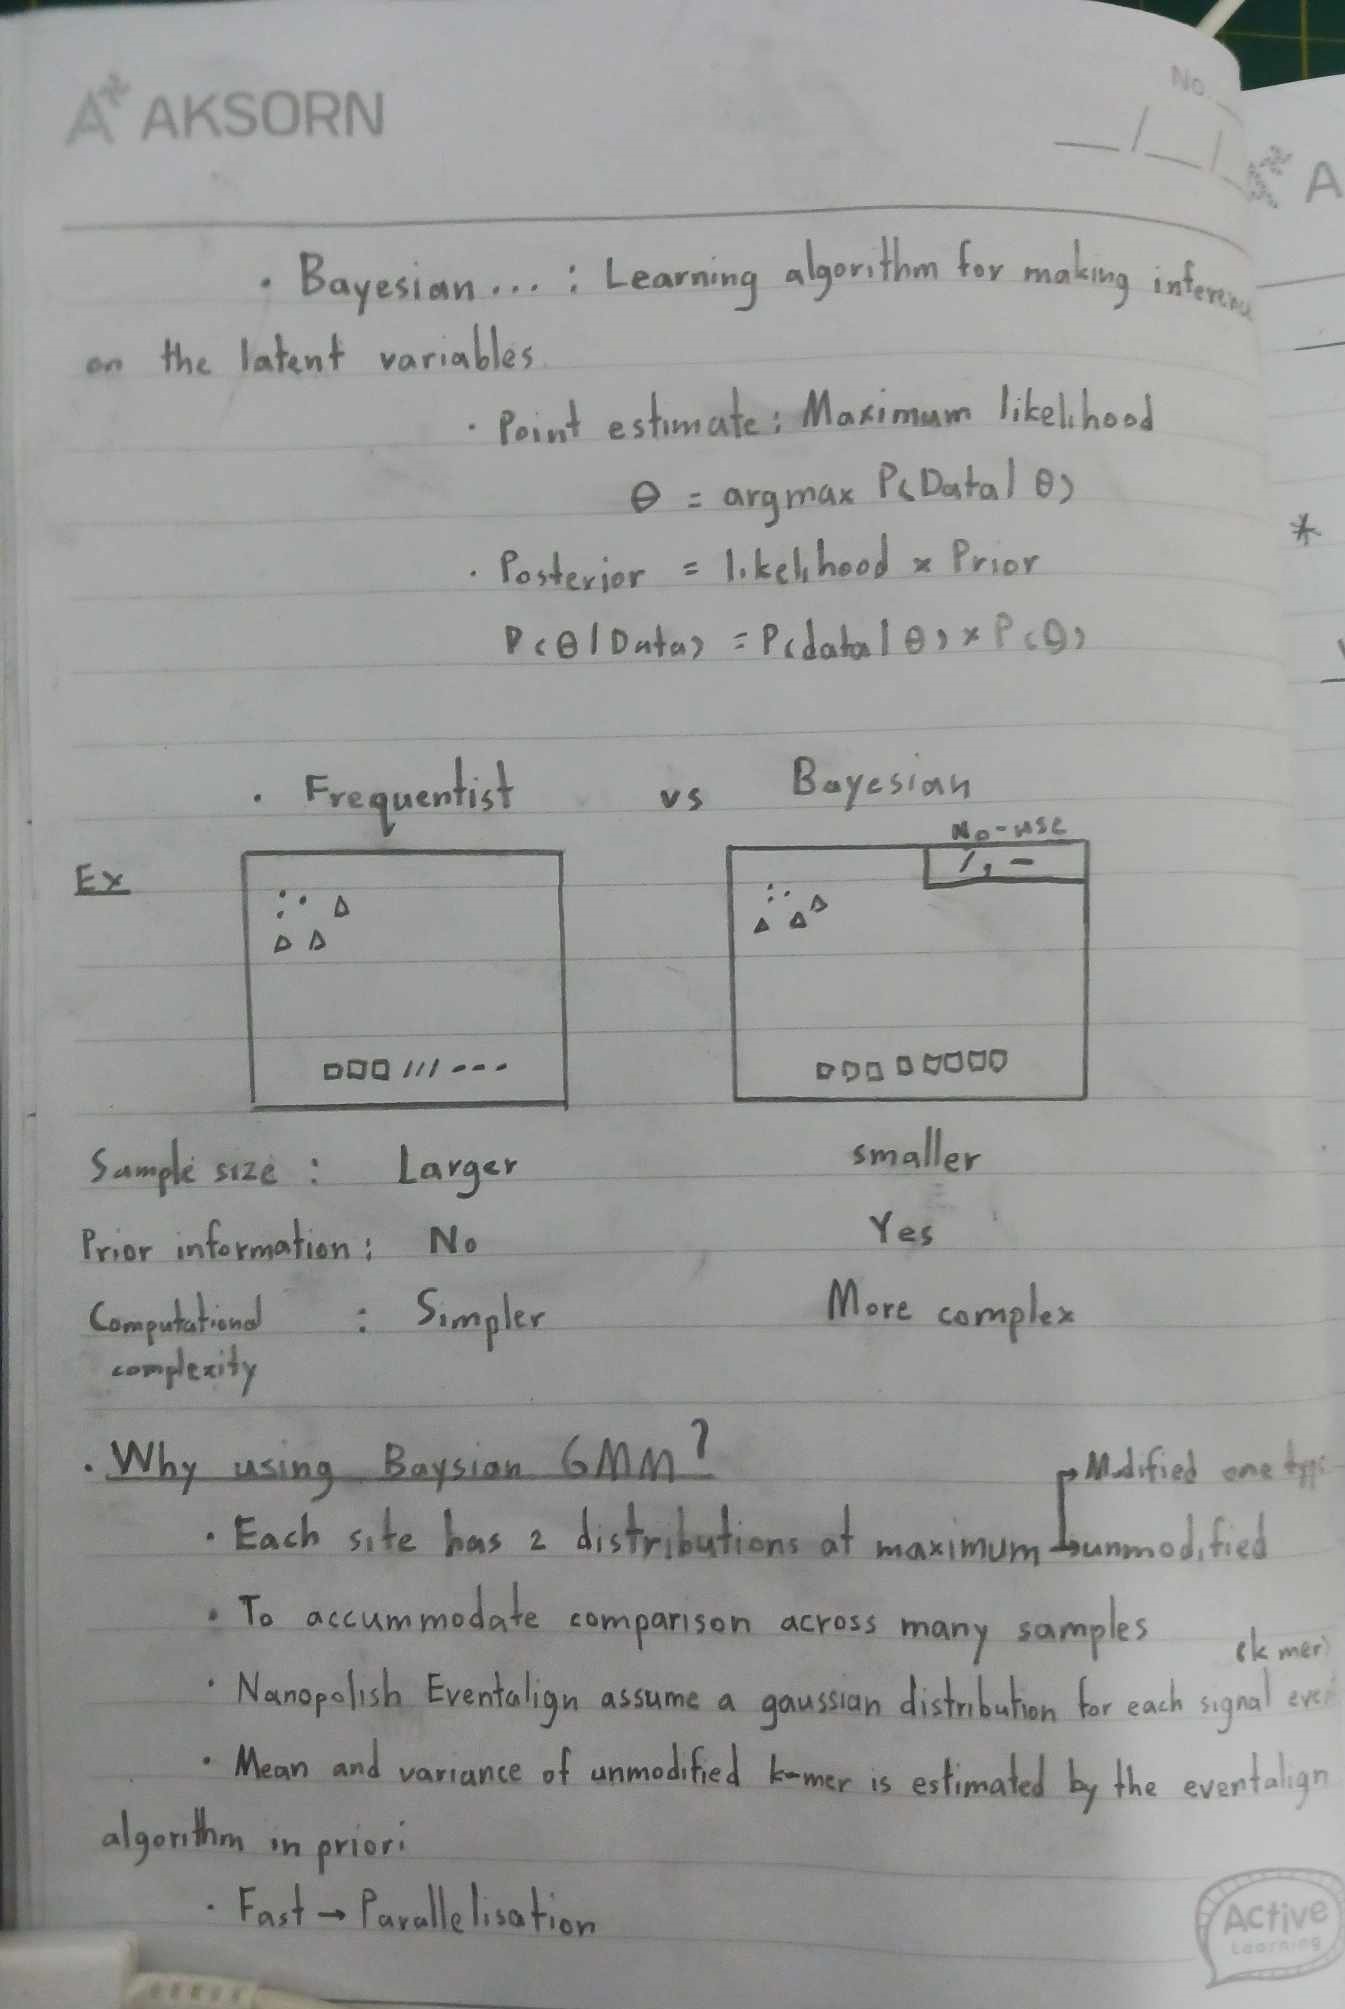 AKSORN
No.
A
· Bayesian... : Learning algorithm for making inference
on the latent variables
· Point estimate: Maximum likelihood
θ = argmax P(Data | θ)
*
· Posterior = likelihood × Prior
P(θ | Data) = P(data | θ) × P(θ)
· Frequentist vs Bayesian
No-use
Ex
Sample size : Larger smaller
Prior information: No Yes
Computational : Simpler More complex
complexity
· Why using Baysian GMM?
Modified one
· Each site has 2 distributions at maximum unmodified
· To accummodate comparison across many samples
(k mer)
· Nanopolish Eventalign assume a gaussian distribution for each signal
· Mean and variance of unmodified k-mer is estimated by the eventalign
algorithm in priori
· Fast → Parallelisation
Active
Learning